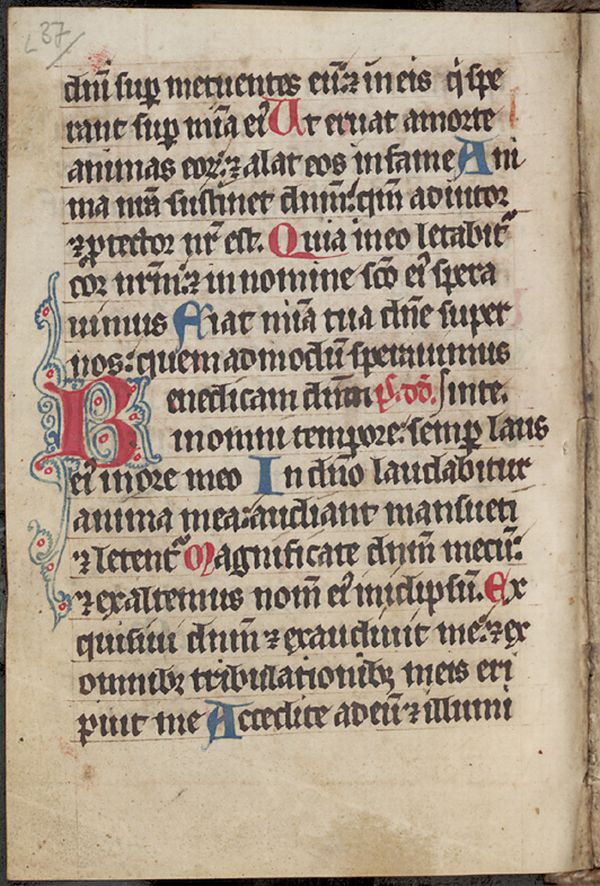 37
dnī sup metuentes eū: ⁊ in eis q̇ spe
rant sup mīa eiꝰ Ut eruat a morte
animas eoꝝ: ⁊ alat eos in fame Ani
ma nrā sustinet dnm̄: qm̄ adiutor
⁊ ꝓtector nr̄ est. Quia in eo letabit᷑
cor nrm̄: ⁊ in nomine sc̄o eiꝰ spera
uimus Fiat mīa tua dn̄e super
nos: quemadmodū sperauimus
Benedicam dnm̄ p̄s. dd̄. sinte.
in omni tempore: semp laus
eiꝰ in ore meo In dn̄o laudabitur
anima mea: audiant mansueti
⁊ letent᷑ Magnificate dnm̄ mecū:
⁊ exaltemus nom̄ eiꝰ in idipsū. Ex
quisiui dnm̄ ⁊ exaudiuit me: ⁊ ex
omnibꝫ tribulationibꝫ meis eri
puit me Accedite ad eū ⁊ illumi